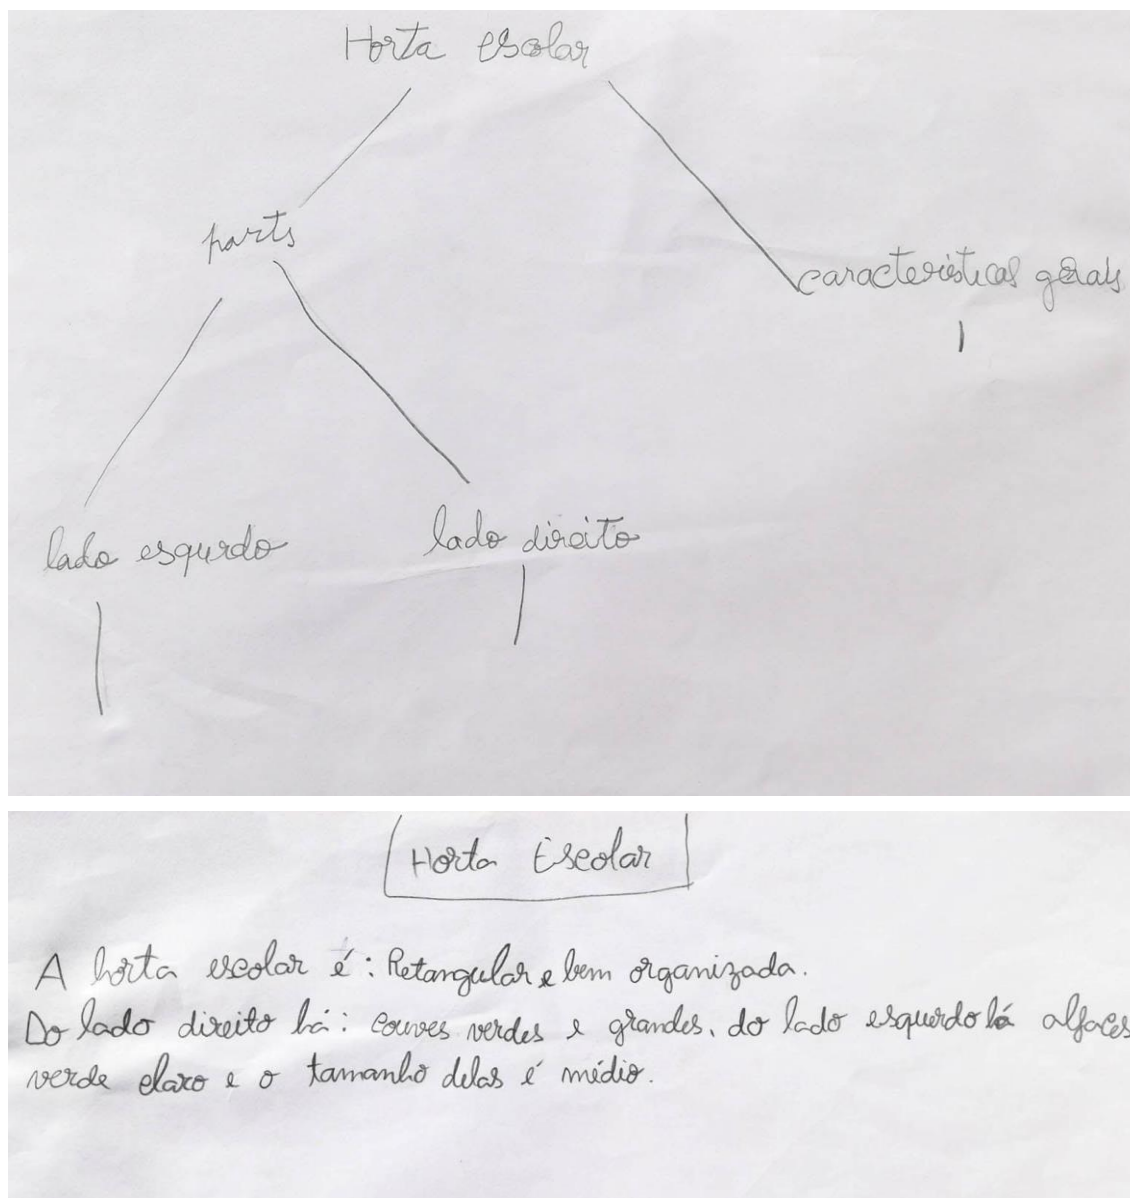 Horta escolar
parts
características gerais
lado esqurdo
lado direito
Horta Escolar
A horta escolar é: Retangular e bem organizada.
Do lado direito há: couves verdes e grandes, do lado esqurdo há alfaces
verde claro e o tamanho delas é médio.